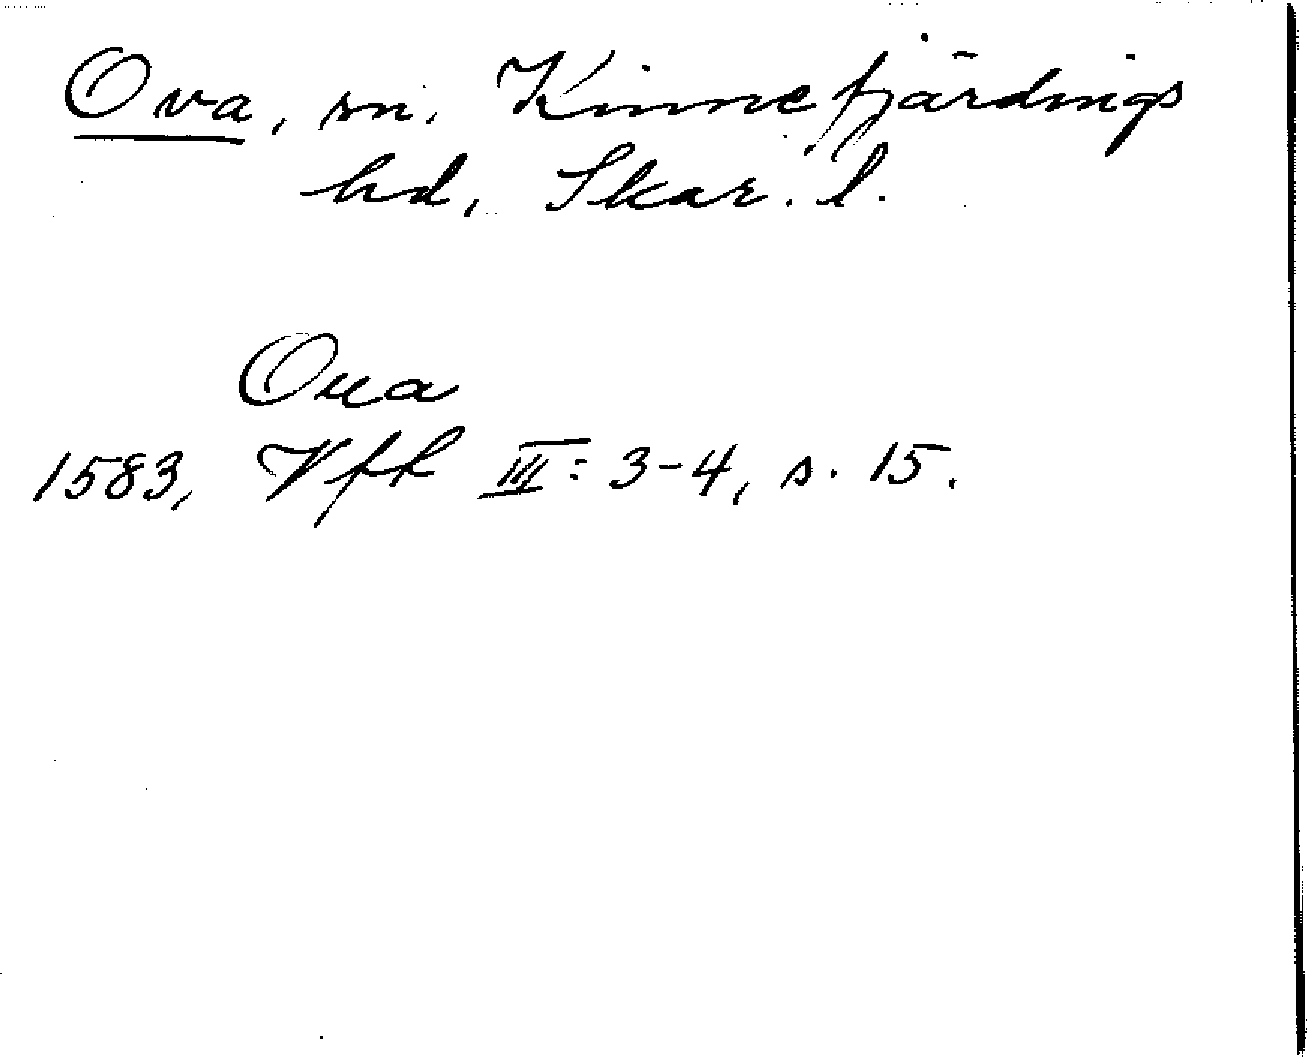 Ova, sn. Kinnefjärdings
hd, Skar. l.
Oua
1583, Vfk III: 3-4, s. 15.